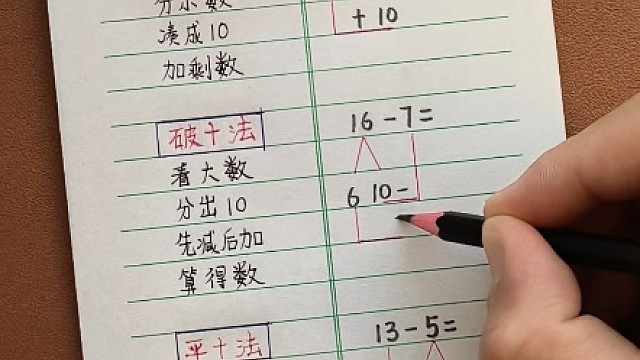 分小数
凑成10
+10
加剩数
破十法
16-7=
看大数
分出10
6 10-
先减后加
算得数
平十法
13-5=